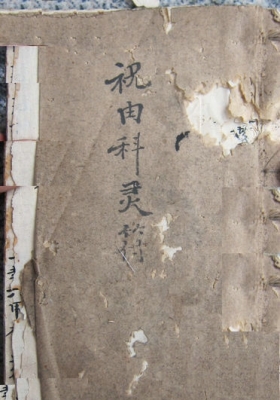 祝由科灵符